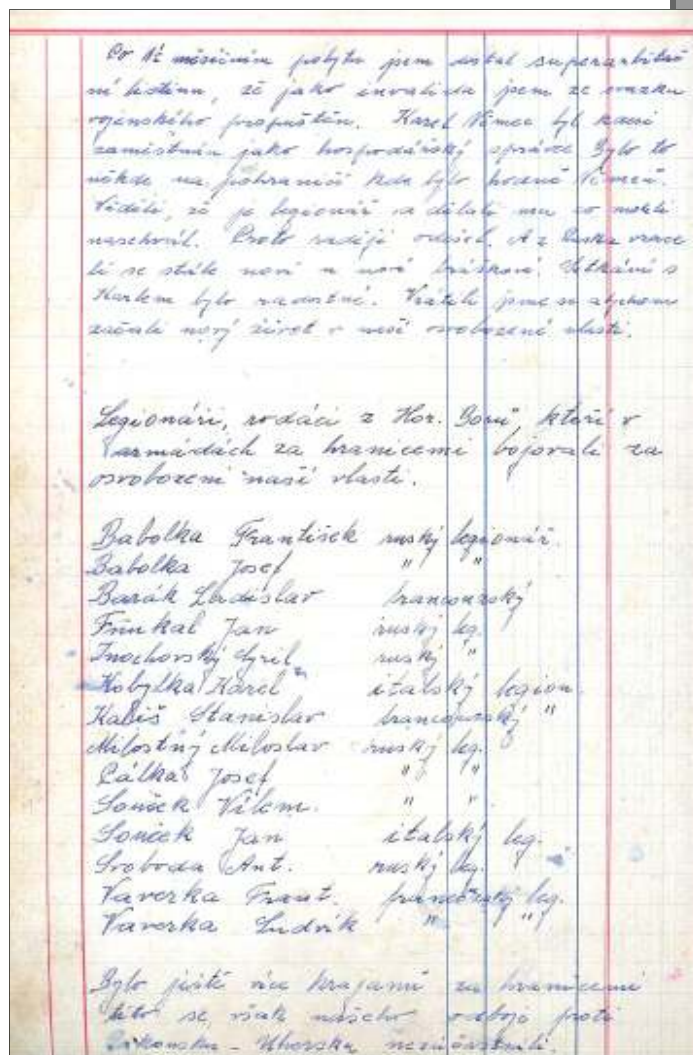 Po 12 měsíčním pobytu jsem dostal superarbitrač
ní listinu, že jako invalida jsem ze svazku
vojenského propuštěn. Karel Němec byl kdesi
zaměstnán jako hospodářský správce. Bylo to
někde na pohraničí kde bylo hodně Němců.
Věděli, že je legionář a dělali mu co mohli
naschvál. Proto raději odešel. A z Ruska vrace
li se stále noví a noví bráškové. Setkání s
Karlem bylo radostné. Vrátili jsme se abychom
začali nový život v naší osvobozené vlasti.
Legionáři, rodáci z Hor. Borů, kteří v
armádách za hranicemi bojovali za
osvobození naší vlasti.
Babolka František ruský legionář.
Babolka Josef " "
Barák Ladislav francouzský
Jan ruský leg.
Cyril ruský "
Kobylka Karel italský legion.
Stanislav francouzský "
Milostný Miloslav ruský leg.
Josef " "
Souček Vilém. " "
Souček Jan italský leg.
Svoboda Ant. ruský leg.
Vaverka Frant. francouzský leg.
Vaverka Ludvík " "
Bylo jistě více krajanů za hranicemi
tito se však našeho odboje proti
Rakousku - Uhersku nezúčastnili